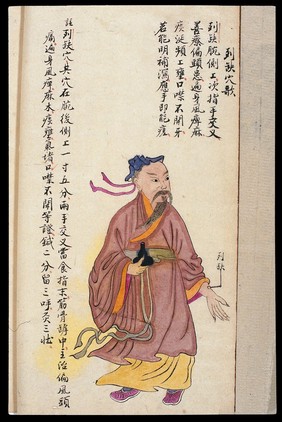 列缺穴歌
列缺腕側上次指手交叉
善療偏頭患遍身風痺麻
痰涎頻上壅口噤不開牙
若能明補瀉應手即能痊
註列缺穴其穴在腕後側上一寸五分兩手交叉當食指末筋骨罅中主治偏風頭
痛遍身風痺麻木痰壅氣堵口噤不開等證鍼二分留三呼灸三壯
列缺